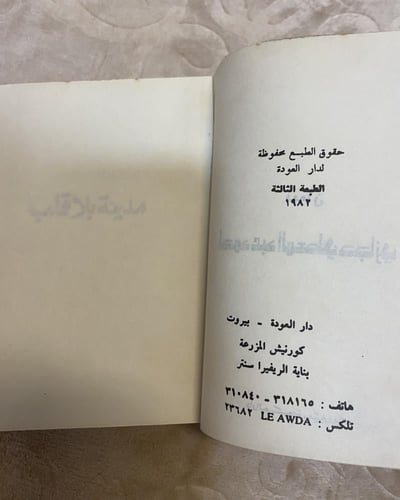 حقوق الطبع محفوظة
لدار العودة
الطبعة الثالثة
١٩٨٢
دار العودة - بيروت
كورنيش المزرعة
بناية الريفيرا سنتر
هاتف : ٣١٨١٦٥ - ٣١٠٨٤٠
تلكس : LE AWDA ٢٣٦٨٢